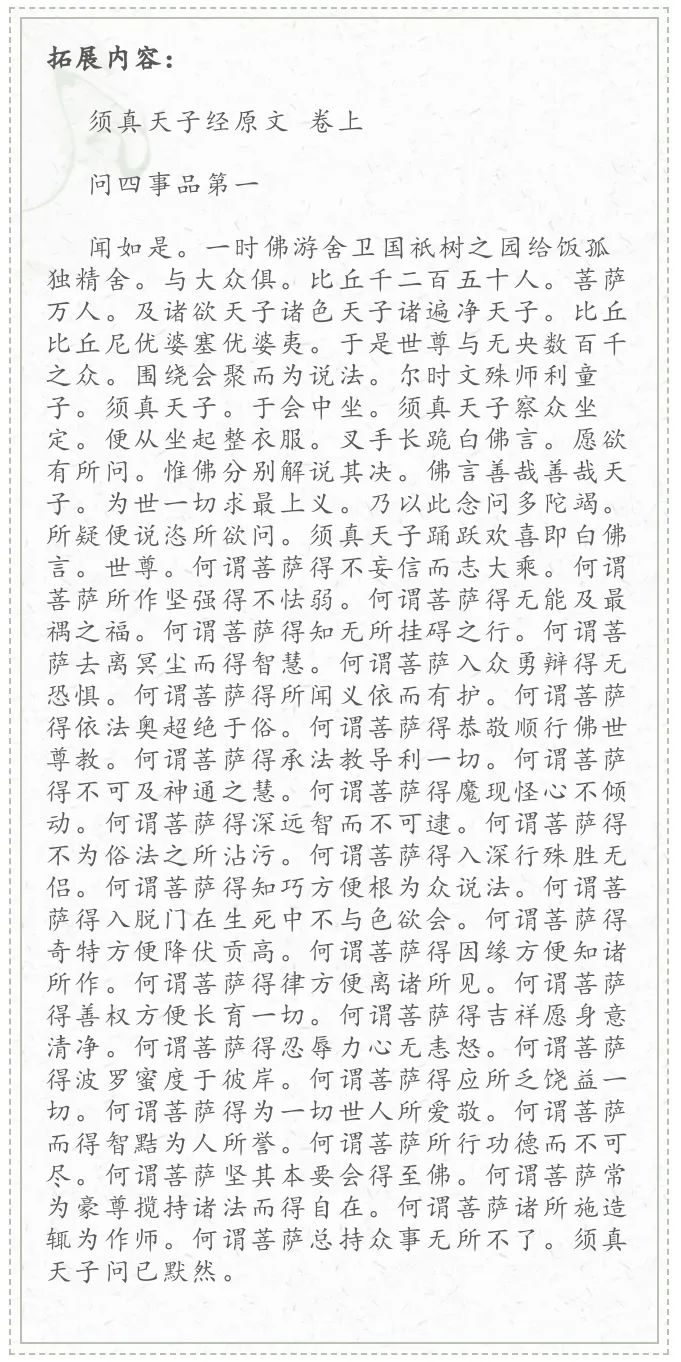 拓展内容：
须真天子经原文 卷上
问四事品第一
闻如是。一时佛游舍卫国祇树之园给饭孤
独精舍。与大众俱。比丘千二百五十人。菩萨
万人。及诸欲天子诸色天子诸遍净天子。比丘
比丘尼优婆塞优婆夷。于是世尊与无央数百千
之众。围绕会聚而为说法。尔时文殊师利童
子。须真天子。于会中坐。须真天子察众坐
定。便从坐起整衣服。叉手长跪白佛言。愿欲
有所问。惟佛分别解说其决。佛言善哉善哉天
子。为世一切求最上义。乃以此念问多陀竭。
所疑便说恣所欲问。须真天子踊跃欢喜即白佛
言。世尊。何谓菩萨得不妄信而志大乘。何谓
菩萨所作坚强得不怯弱。何谓菩萨得无能及最
祸之福。何谓菩萨得知无所挂碍之行。何谓菩
萨去离冥尘而得智慧。何谓菩萨入众勇辩得无
恐惧。何谓菩萨得所闻义依而有护。何谓菩萨
得依法奥超绝于俗。何谓菩萨得恭敬顺行佛世
尊教。何谓菩萨得承法教导利一切。何谓菩萨
得不可及神通之慧。何谓菩萨得魔现怪心不倾
动。何谓菩萨得深远智而不可逮。何谓菩萨得
不为俗法之所沾污。何谓菩萨得入深行殊胜无
侣。何谓菩萨得知巧方便根为众说法。何谓菩
萨得入脱门在生死中不与色欲会。何谓菩萨得
奇特方便降伏贡高。何谓菩萨得因缘方便知诸
所作。何谓菩萨得律方便离诸所见。何谓菩萨
得善权方便长育一切。何谓菩萨得吉祥愿身意
清净。何谓菩萨得忍辱力心无恚怒。何谓菩萨
得波罗蜜度于彼岸。何谓菩萨得应所乏饶益一
切。何谓菩萨得为一切世人所爱敬。何谓菩萨
而得智黠为人所誉。何谓菩萨所行功德而不可
尽。何谓菩萨坚其本要会得至佛。何谓菩萨常
为豪尊揽持诸法而得自在。何谓菩萨诸所施造
辄为作师。何谓菩萨总持众事无所不了。须真
天子问已默然。